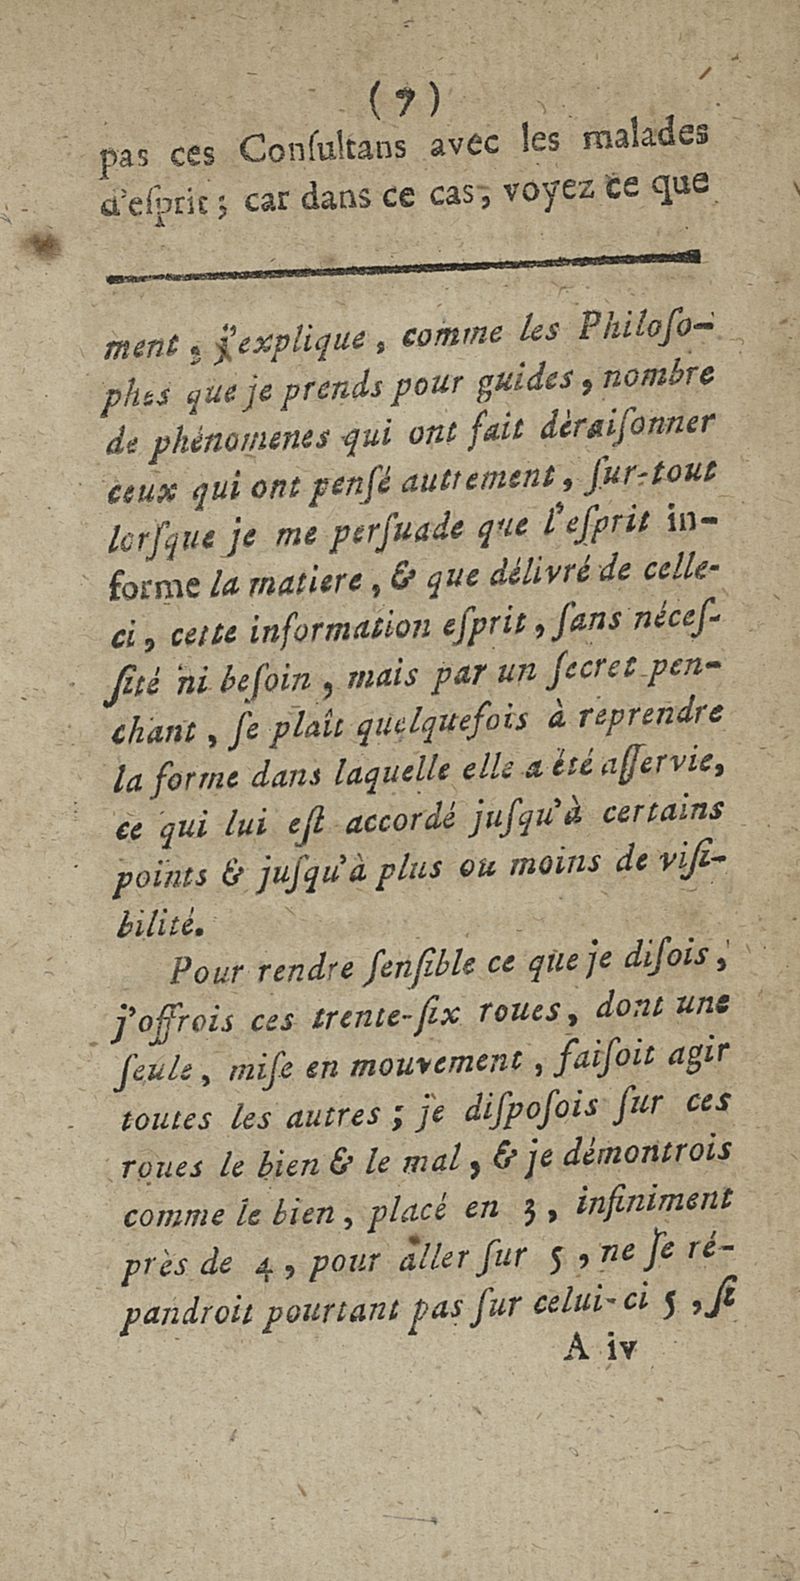 (7)
pas ces Conſultans avec les malades
d'eſprit; car dans ce cas, voyez ce que
ment, j'explique, comme les Philoſo-
phes que je prends pour guides, nombre
de phénomenes qui ont fait dèraiſonner
ceux qui ont penſé autrement, ſur-tout
lorſque je me perſuade que l'eſprit in-
forme la matiere, & que délivré de celle-
ci, cette information eſprit, ſans néceſ-
ſité ni beſoin, mais par un ſecret pen-
chant, ſe plaît quelquefois à reprendre
la forme dans laquelle elle a été aſſervie,
ce qui lui eſt accordé juſqu'à certains
points & juſqu'à plus ou moins de viſi-
bilité.
Pour rendre ſenſible ce que je diſois,
j'offrois ces trente-ſix roues, dont une
ſeule, miſe en mouvement, faiſoit agir
toutes les autres; je diſpoſois ſur ces
roues le bien & le mal, & je démontrois
comme le bien, placé en 3, infiniment
près de 4, pour aller ſur 5, ne ſe ré-
pandroit pourtant pas ſur celui-ci 5, ſi
A iv